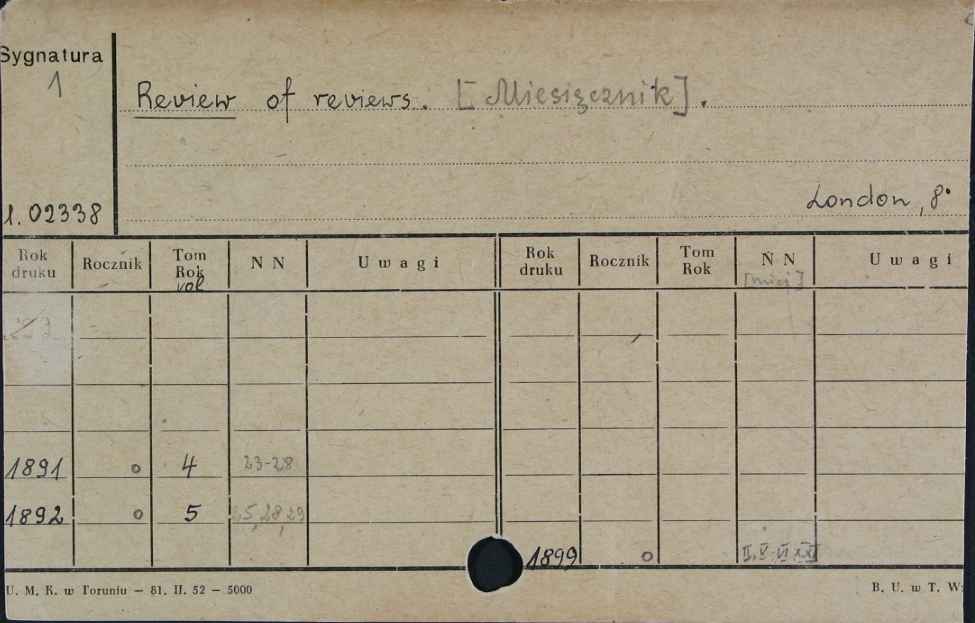 Sygnatura
1
Review of reviews. [Miesięcznik].
London, 8°
1.02338
Rok druku Rocznik Tom Rok vol N N Uwagi Rok druku Rocznik Tom Rok N N [mies] Uwagi
1891 o 4 23-28
1892 o 5 25,28,29
1899 o II,V-VI
U. M. K. w Toruniu — 81. II. 52 — 5000 B. U. w T. W